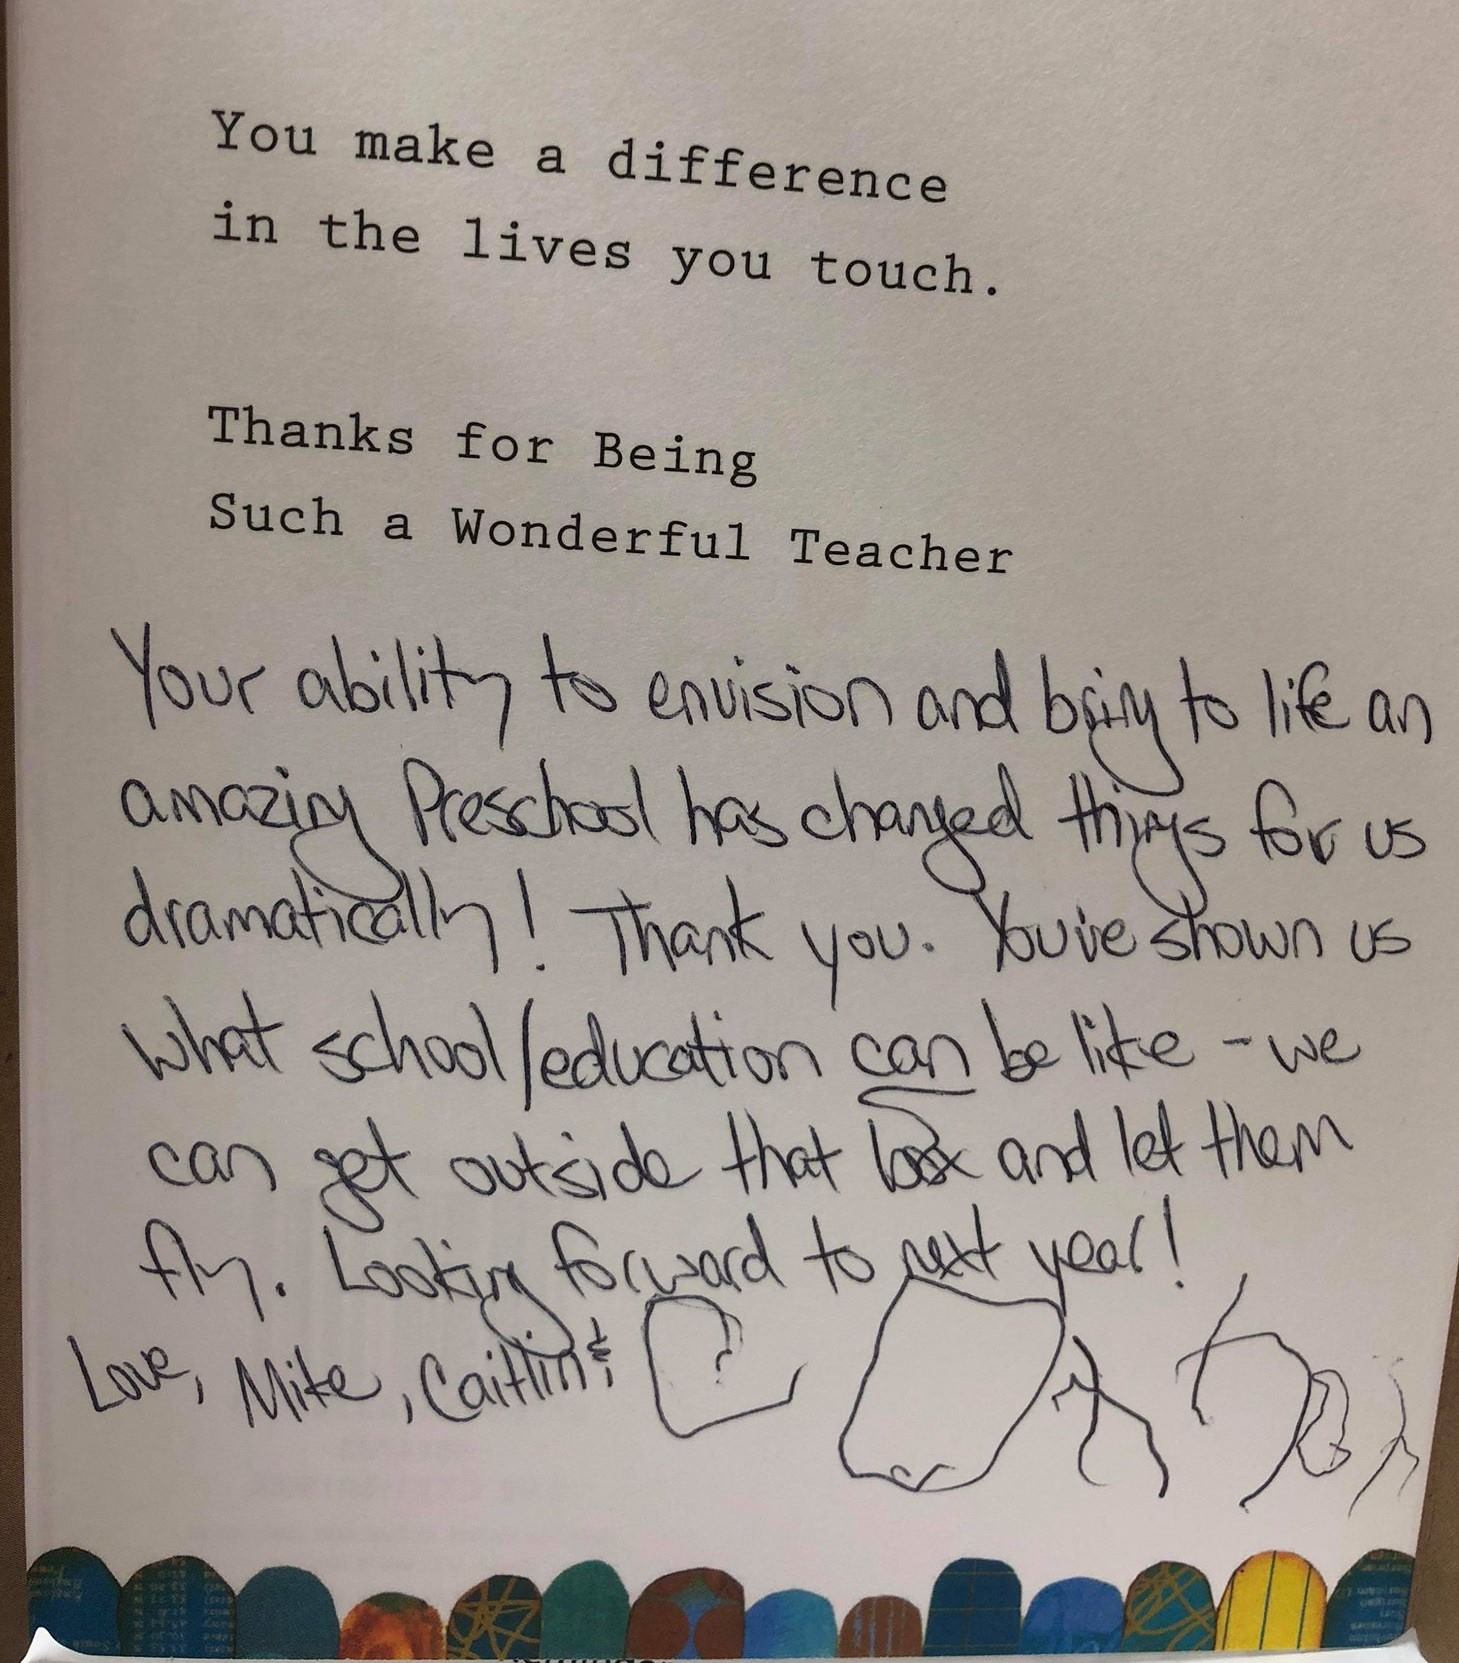 You make a difference
in the lives you touch.
Thanks for Being
Such a Wonderful Teacher
Your ability to envision and bring to life an
amazing Preschool has changed things for us
dramatically! Thank you. You've shown us
what school/education can be like - we
can get outside that box and let them
fly. Looking forward to next year!
Love, Mike, Caitlin &